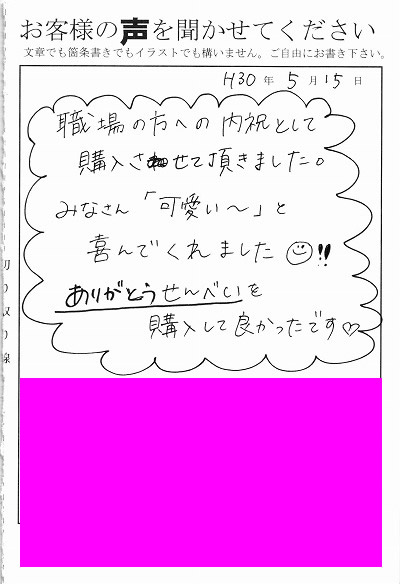 お客様の声を聞かせてください
文章でも箇条書きでもイラストでも構いません。ご自由にお書き下さい。
H30年 5月15日
職場の方への内祝として
購入させて頂きました。
みなさん「可愛い〜」と
喜んでくれました!!
ありがとうせんべいを
購入して良かったです♡
切り取り線